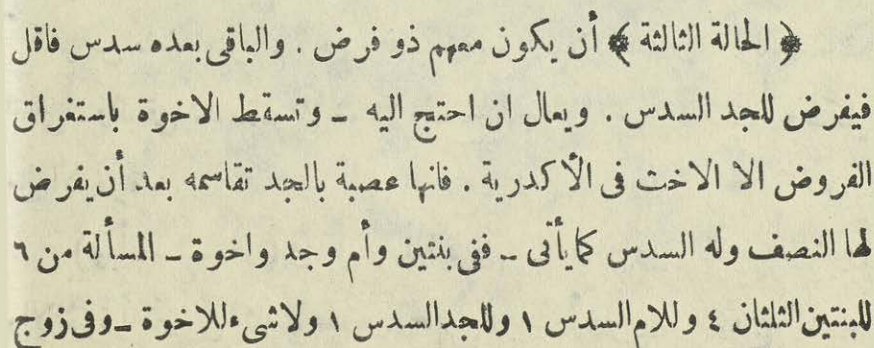 ﴿ الحالة الثالثة ﴾ أن يكون معهم ذو فرض . والباقى بعده سدس فاقل
فيفرض للجد السدس . ويعال ان احتج اليه ــ وتسقط الاخوة باستغراق
الفروض الا الاخت فى الأكدرية . فانها عصبة بالجد تقاسمه بعد أن يفرض
لها النصف وله السدس كما يأتى ــ ففى بنتين وأم وجد واخوة ــ المسألة من ٦
للبنتين الثلثان ٤ وللام السدس ١ وللجد السدس ١ ولاشىء للاخوة ــ وفى زوج